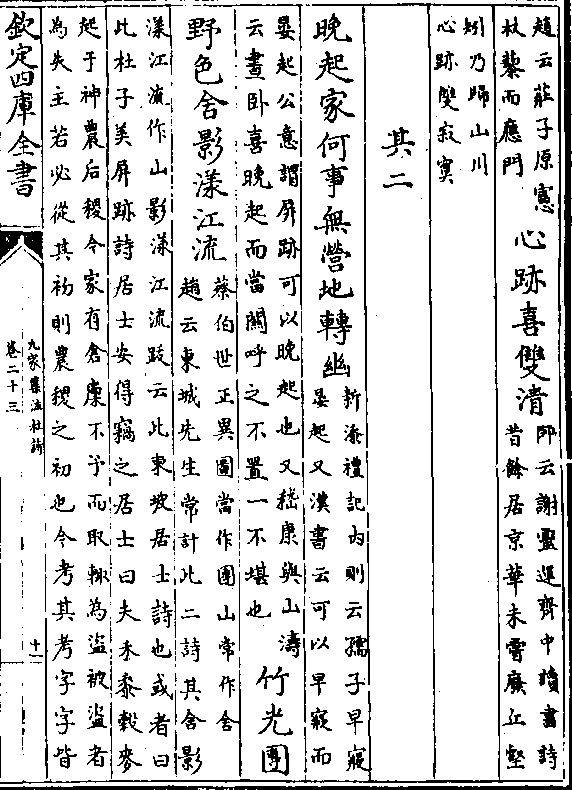 趙云莊子原憲
杖藜而應門
心跡喜雙清
師云謝靈運齊中讀書詩
昔餘居京華未嘗廢丘壑
矧乃歸山川
心跡雙寂寞
其二
晚起家何事無營地轉幽
新添禮記内則云孺子早寢
晏起又漢書云可以早寢而
晏起公意謂屏跡可以晚起也又嵇康與山濤
云晝卧喜晚起而當關呼之不置一不堪也
竹光團
野色舍影漾江流
蔡伯世正異圖當作團山常作舍
趙云東城先生常計此二詩其舍影
漾江濱作山影漾江流跋云此東坡居士詩也或者曰
此杜子美屏跡詩居士安得竊之居士曰夫禾黍穀麥
起于神農后稷今家有倉廩不予而取輙為盜被盜者
為失主若必從其初則農稷之初也今考其考字字皆
欽定四庫全書
九家集注杜詩
卷二十三
十一